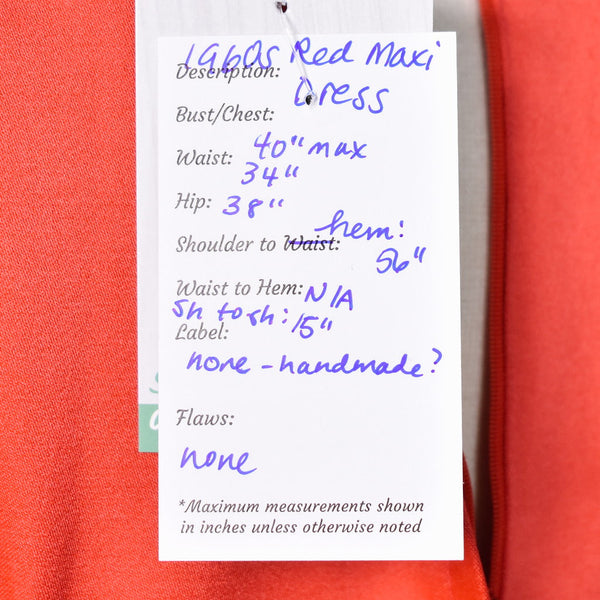 1960s Red Maxi
Description:
Dress
Bust/Chest:
40" max
Waist:
34"
Hip: 38"
hem:
Shoulder to Waist:
56"
Waist to Hem: N/A
Sh to sh: 15"
Label:
none - handmade?
Flaws:
none
*Maximum measurements shown
in inches unless otherwise noted